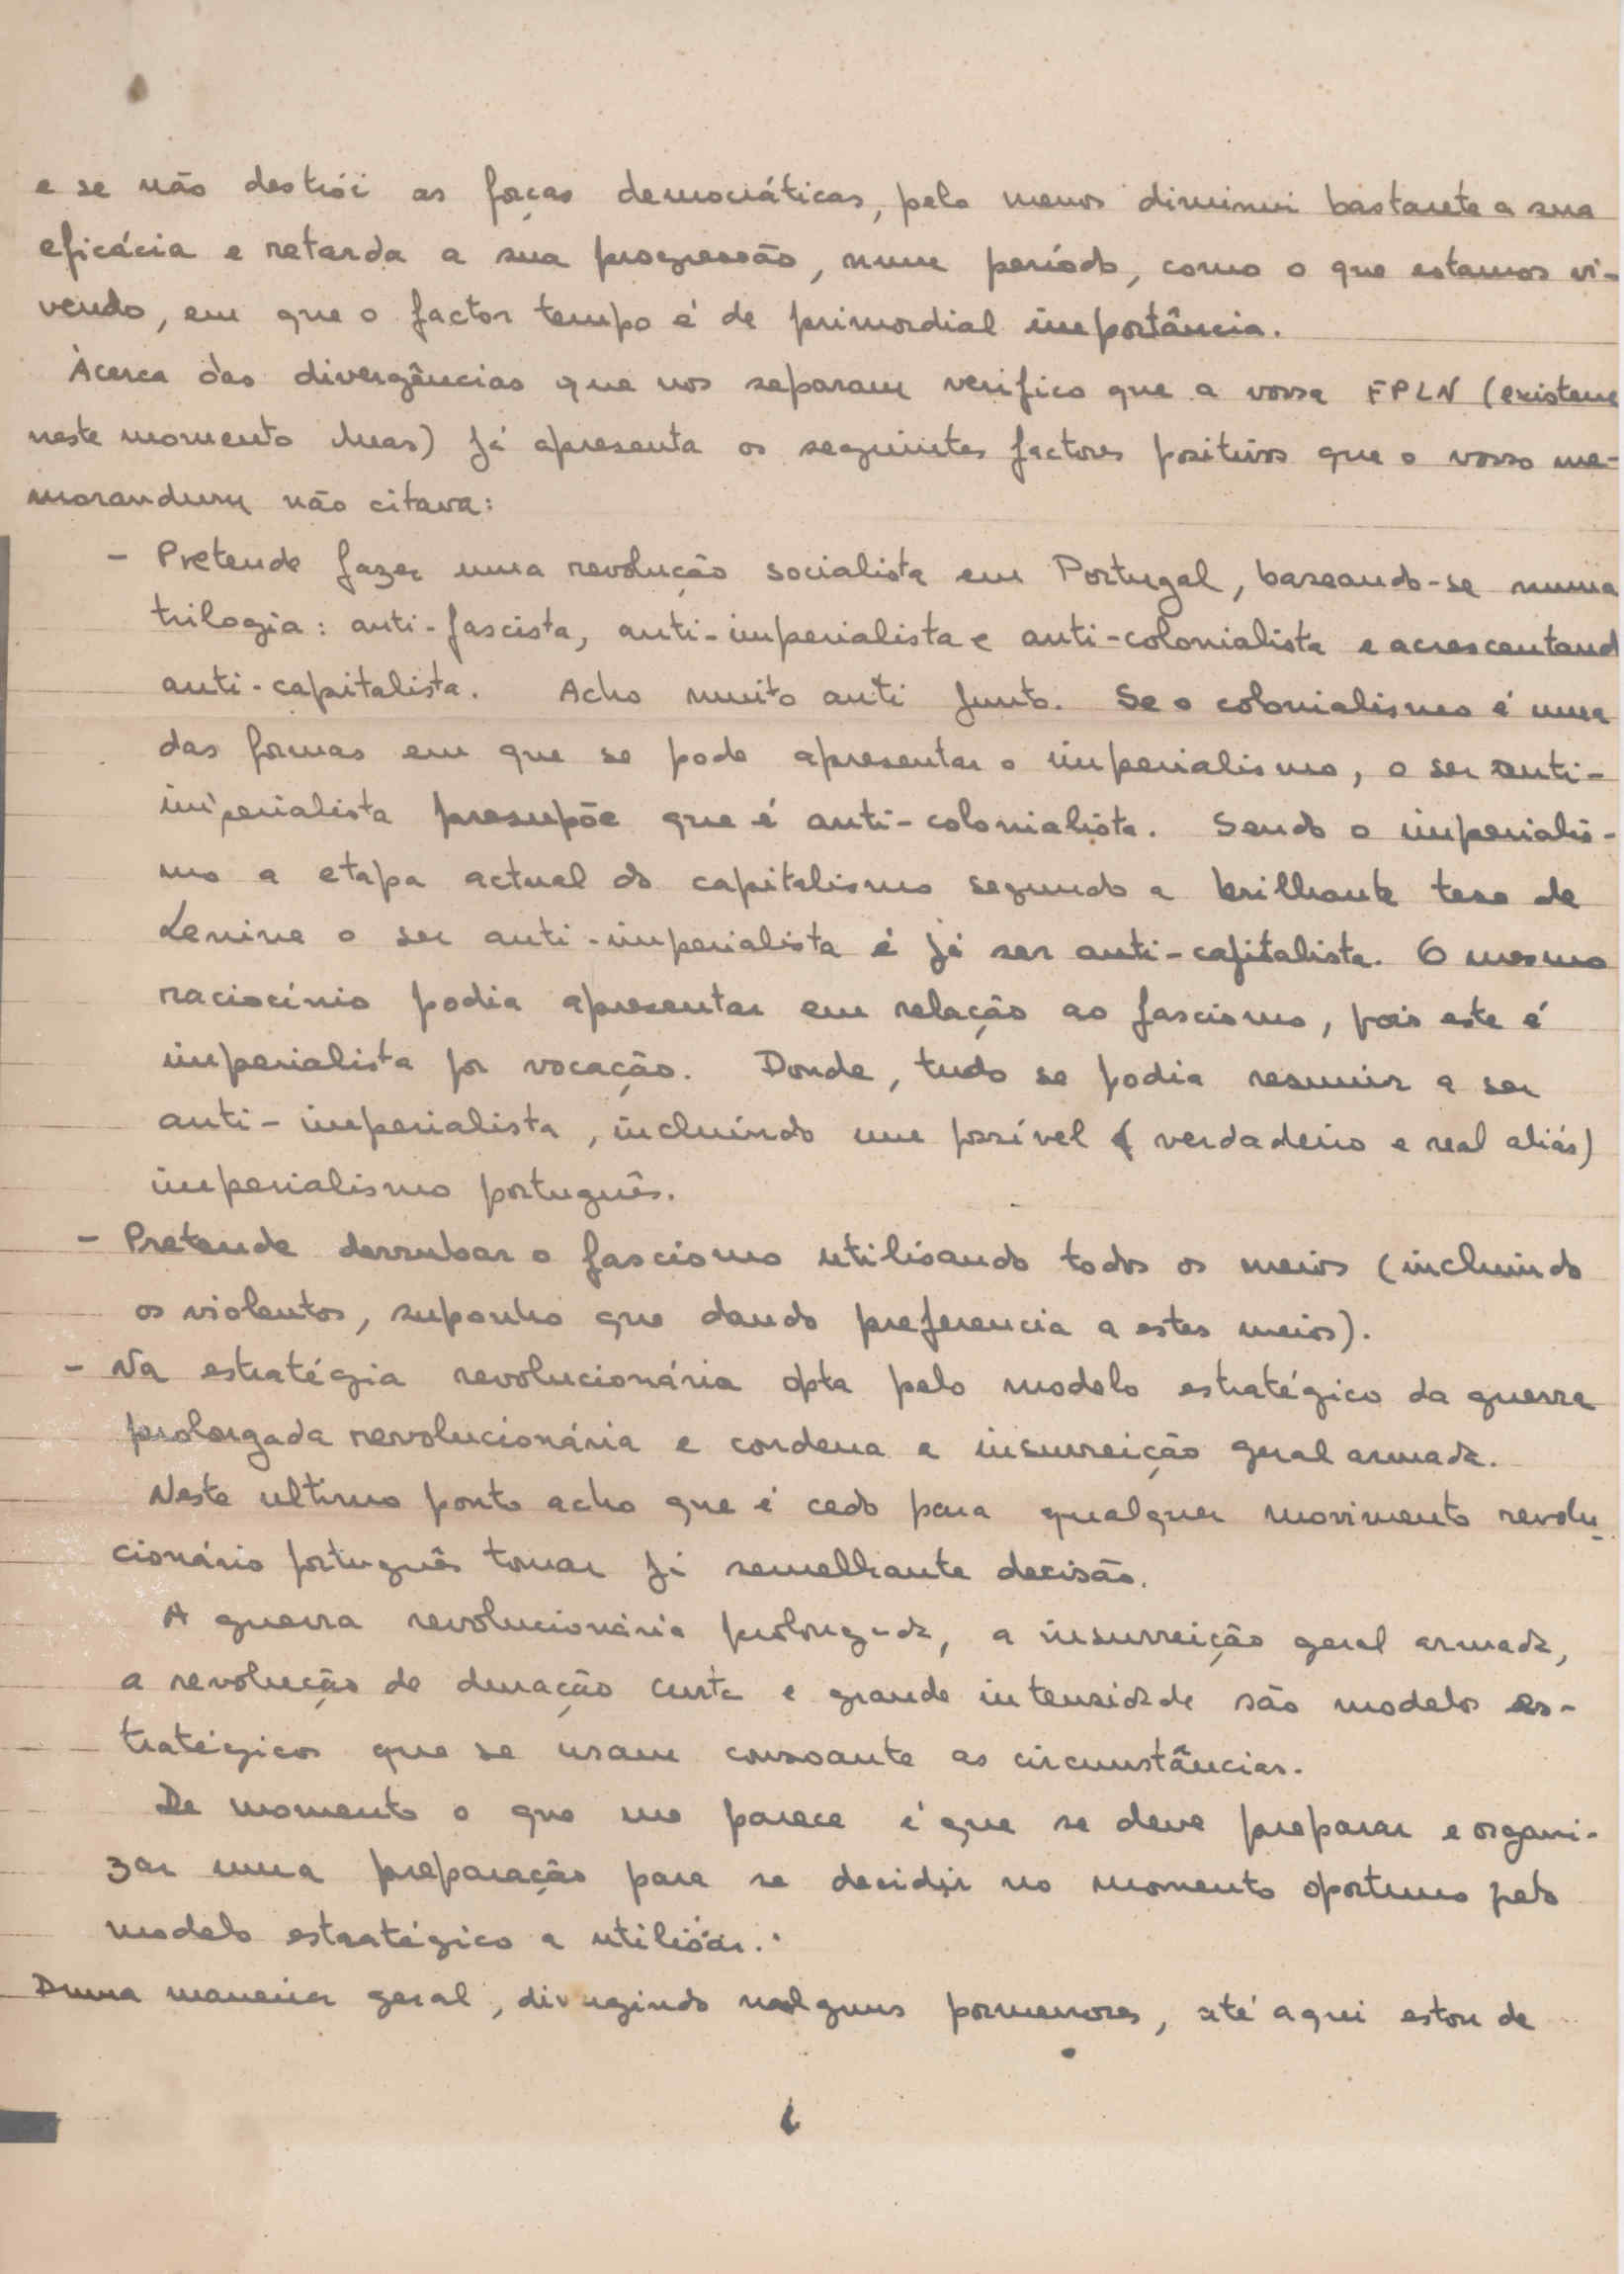 e se não destrói as forças democráticas, pelo menos diminui bastante a sua
eficácia e retarda a sua progressão, num período, como o que estamos vi-
vendo, em que o factor tempo é de primordial importância.
Àcerca das divergências que nos separam verifico que a vossa FPLN (existem
neste momento duas) já apresenta os seguintes factores positivos que o vosso me-
morandum não citava:
- Pretende fazer uma revolução socialista em Portugal, baseando-se numa
trilogia: anti-fascista, anti-imperialista e anti-colonialista e acrescentand
anti-capitalista. Acho muito anti junto. Se o colonialismo é uma
das formas em que se pode apresentar o imperialismo, o ser anti-
imperialista presupõe que é anti-colonialista. Sendo o imperialis-
mo a etapa actual do capitalismo segundo a brilhante tese de
Lenine o ser anti-imperialista é já ser anti-capitalista. O mesmo
raciocínio podia apresentar em relação ao fascismo, pois este é
imperialista por vocação. Donde, tudo se podia resumir a ser
anti-imperialista, incluindo um possível (verdadeiro e real aliás)
imperialismo português.
- Pretende derrubar o fascismo utilisando todos os meios (incluindo
os violentos, suponho que dando preferencia a estes meios).
- Na estratégia revolucionária opta pelo modelo estratégico da guerra
prolongada revolucionária e condena a insurreição geral armada.
Neste ultimo ponto acho que é cedo para qualquer movimento revolu-
cionário português tomar já semelhante decisão.
A guerra revolucionária prolongada, a insurreição geral armada,
a revolução de duração curta e grande intensidade são modelos es-
tratégicos que se usam consoante as circunstâncias.
De momento o que me parece é que se deve preparar e organi-
zar uma preparação para se decidir no momento oportuno pelo
modelo estratégico a utilisar.
Duma maneira geral, divergindo nalguns pormenores, até aqui estou de